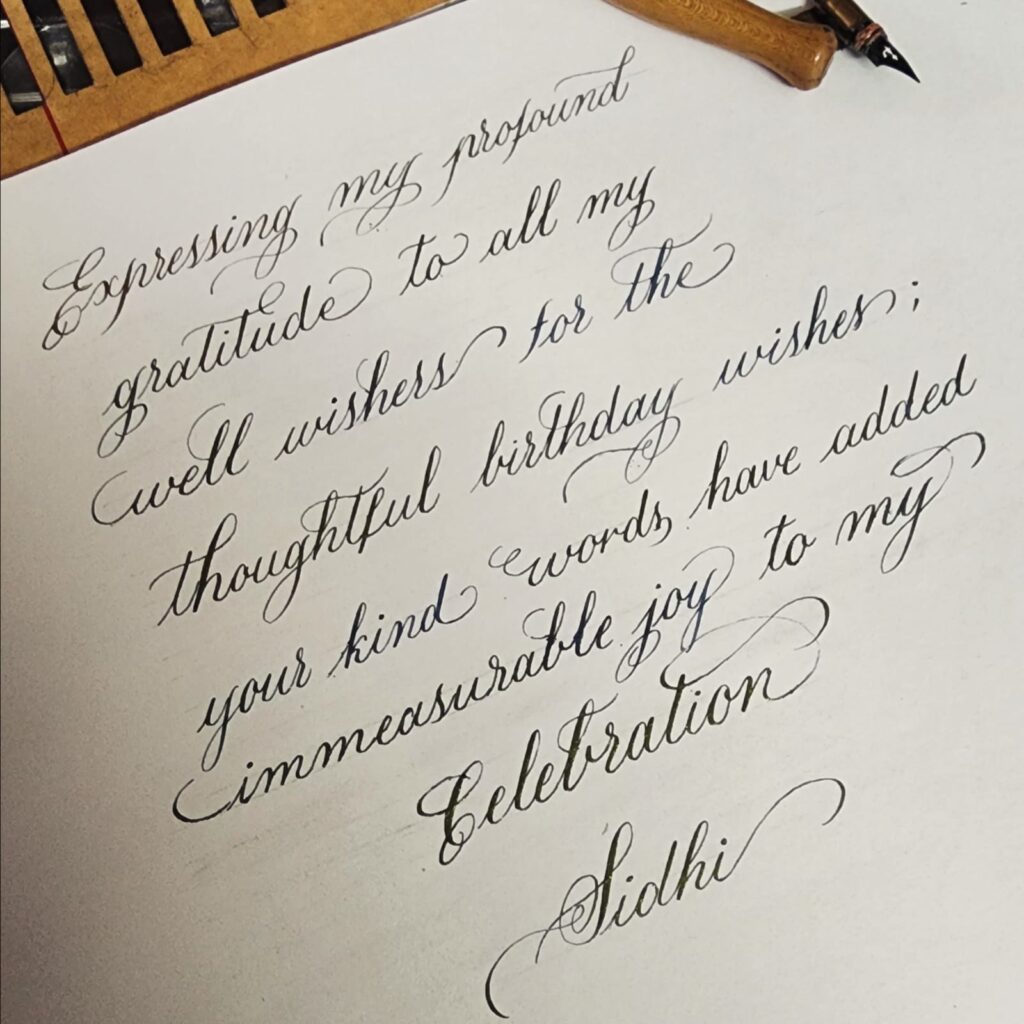 Expressing my profound
gratitude to all my
well wishers for the
thoughtful birthday wishes;
your kind words have added
immeasurable joy to my
Celebration
Sidhi